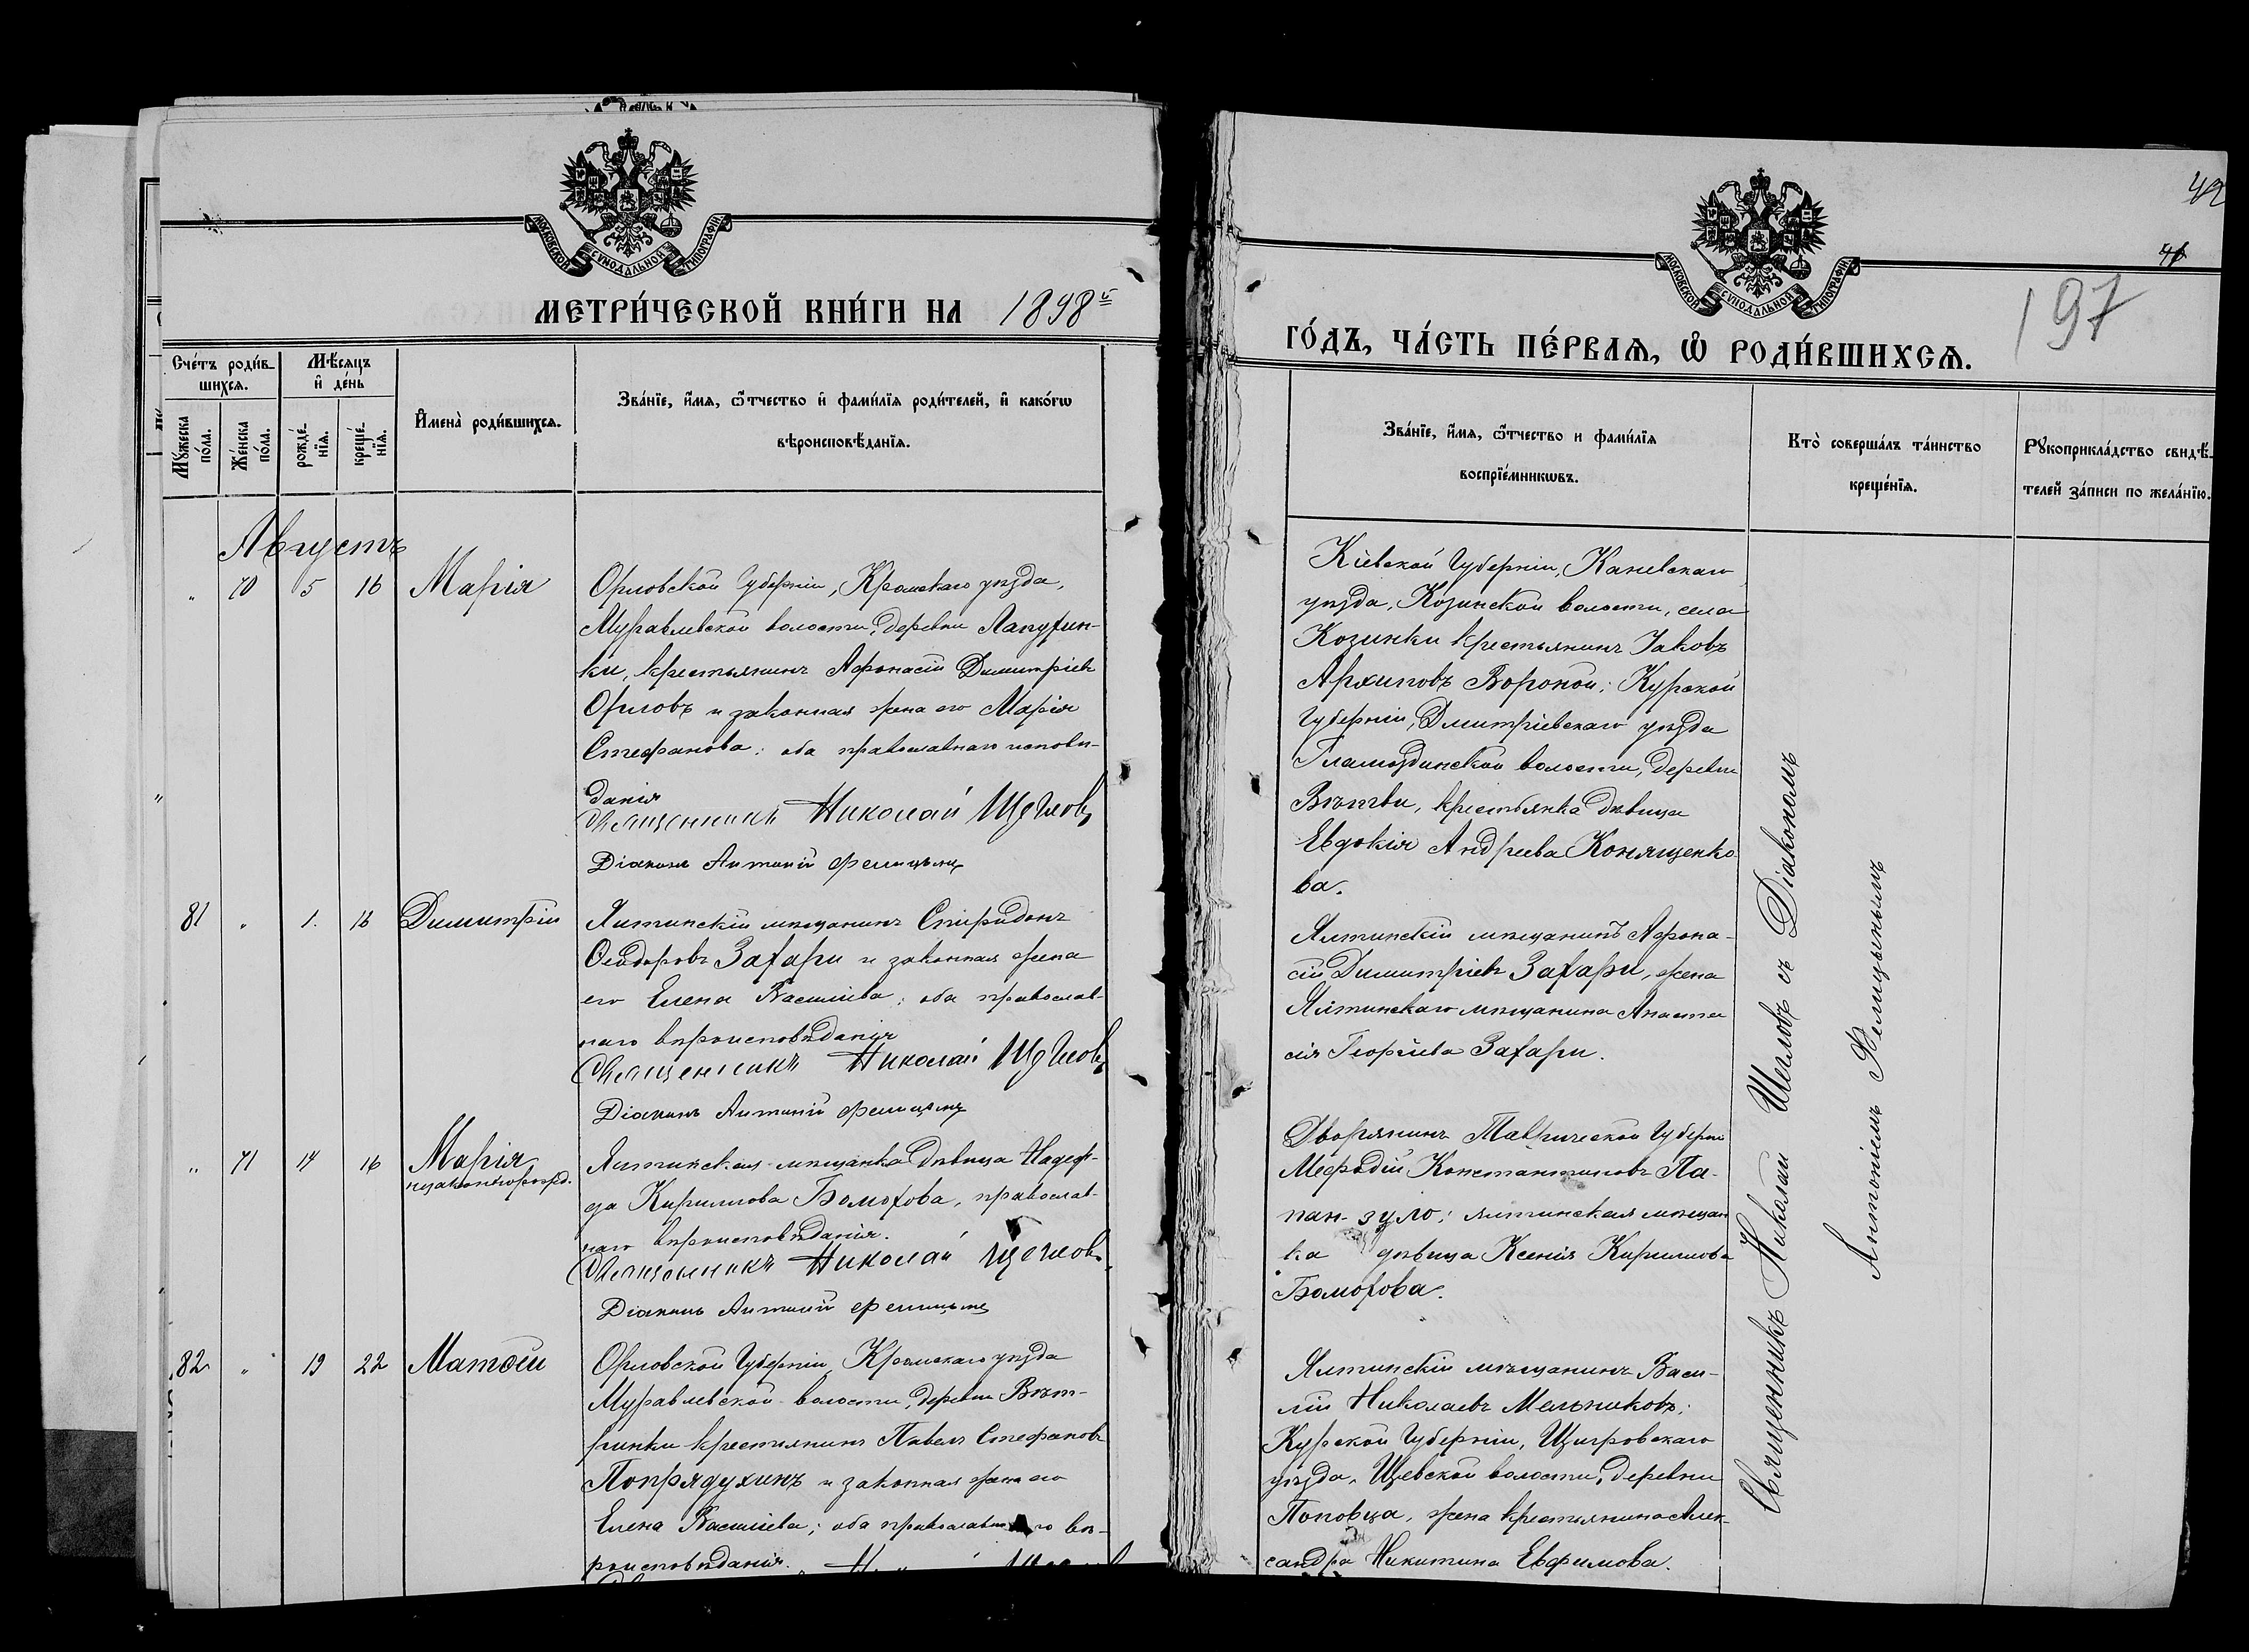 МОСКОВСКОЙ СѴНОДАЛЬНОЙ ТИПОГРАФІИ
МЕТРИ́ЧЕСКОЙ КНИ́ГИ НА 1898й
Сче́тъ роди́в-
шихсѧ.
Мѣ́сѧцъ
и҆ де́нь
Мꙋ́жеска
по́ла.
Же́нска
по́ла.
рожде́-
нїѧ.
креще́-
нїѧ.
И҆мена̀ роди́вшихсѧ.
Зва́нїе, и҆́мѧ, ѻ҆́тчество и҆ фами́лїѧ роди́телей, и҆ како́гѡ
вѣроисповѣ́данїѧ.
Августъ
„ 70 5 16 Марія
Орловской Губерніи, Кромскаго уѣзда,
Муравлевской волости, деревни Лапухин-
ки, крестьянинъ Афонасій Димитріевъ
Орловъ и законная жена его Марія
Стефанова; оба православнаго исповѣ-
данія
Священникъ Николай Щегловъ
Діаконъ Антоній Фелицынъ
81 „ 1. 16 Димитрій
Ялтинскій мѣщанинъ Спиридонъ
Ѳеодоровъ Захари и законная жена
его Елена Василіева; оба православ-
наго вѣроисповѣданія
Священникъ Николай Щегловъ
Діаконъ Антоній Фелицынъ
„ 71 14 16 Марія
незаконнорожд.
Ялтинская мѣщанка дѣвица Надеж-
да Кириллова Бомохова, православ-
наго вѣроисповѣданія.
Священникъ Николай Щегловъ
Діаконъ Антоній Фелицынъ
82 „ 19 22 Матѳей
Орловской Губерніи Кромскаго уѣзда
Муравлевской волости, деревни Вѣт-
ринки крестьянинъ Павелъ Стефановъ
Попрядухинъ и законная жена его
Елена Василіева; оба православнаго вѣ-
роисповѣданія.
42
МОСКОВСКОЙ СѴНОДАЛЬНОЙ ТИПОГРАФІИ
197
ГО́ДЪ, ЧА́СТЬ ПЕ́РВАѦ, Ѡ҆ РОДИ́ВШИХСѦ.
Зва́нїе, и҆́мѧ, ѻ҆́тчество и фами́лїѧ
воспрїе́мникѡвъ.
Кто̀ соверша́лъ та́инство
креще́нїѧ.
Рꙋкоприкла́дство свидѣ́-
телей за́писи по жела́нїю.
Кіевской Губерніи, Каневскаго
уѣзда, Козинской волости, села
Козинки крестьянинъ Іаковъ
Архиповъ Вороной; Курской
Губерніи, Дмитріевскаго уѣзда
Гламаздинской волости, деревни
Вѣтви, крестьянка дѣвица
Евдокія Андреева Конященко-
ва.
Ялтинскій мѣщанинъ Афона-
сій Димитріевъ Захари, жена
Ялтинскаго мѣщанина Анаста-
сія Георгіева Захари.
Дворянинъ Таврической Губерніи
Меѳодій Константиновъ Па-
пан-зуло; ялтинская мѣщан
ка дѣвица Ксенія Кириллова
Бомохова.
Ялтинскій мѣщанинъ Васи-
лій Николаевъ Мельниковъ;
Курской Губерніи, Щигровскаго
уѣзда, волости, деревни
Поповца, жена крестьянина Алек-
сандра Никитина Евфимова.
Священникъ Николай Щегловъ съ Діакономъ
Антоніемъ Фелицынымъ